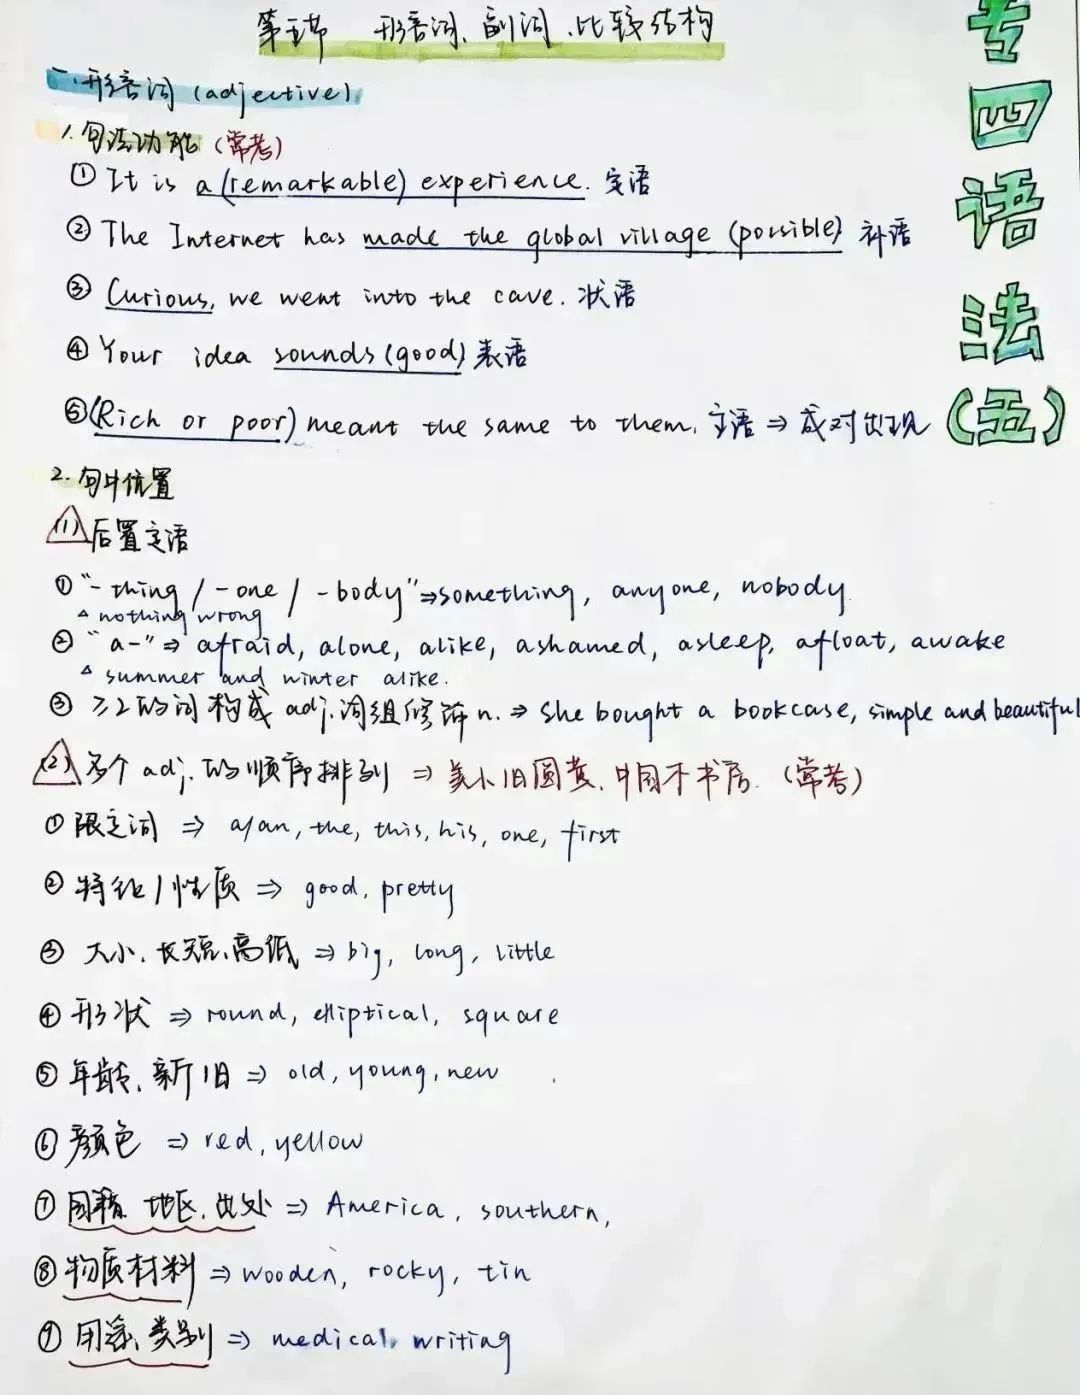 第五节 形容词、副词、比较结构
专四语法(五)
一、形容词 (adjective)
1. 句法功能 (常考)
① It is a (remarkable) experience. 定语
② The Internet has made the global village (porsible) 补语
③ Curious, we went into the cave. 状语
④ Your idea sounds (good) 表语
⑤ (Rich or poor) meant the same to them. 主语 ⇒ 成对出现
2. 句中位置
(1) 后置定语
① "-thing / -one / -body" ⇒ something, anyone, nobody
△ nothing wrong
② "a-" ⇒ afraid, alone, alike, ashamed, asleep, afloat, awake
△ summer and winter alike.
③ ≥2的词构成adj.词组修饰n. ⇒ She bought a bookcase, simple and beautiful
(2) 多个adj.的顺序排列 ⇒ 美小旧圆黄,中国木书房. (常考)
① 限定词 ⇒ a/an, the, this, his, one, first
② 特征/性质 ⇒ good, pretty
③ 大小、长短、高低 ⇒ big, long, little
④ 形状 ⇒ round, elliptical, square
⑤ 年龄、新旧 ⇒ old, young, new
⑥ 颜色 ⇒ red, yellow
⑦ 国籍、地区、出处 ⇒ America, southern,
⑧ 物质材料 ⇒ wooden, rocky, tin
⑨ 用途、类别 ⇒ medical, writing